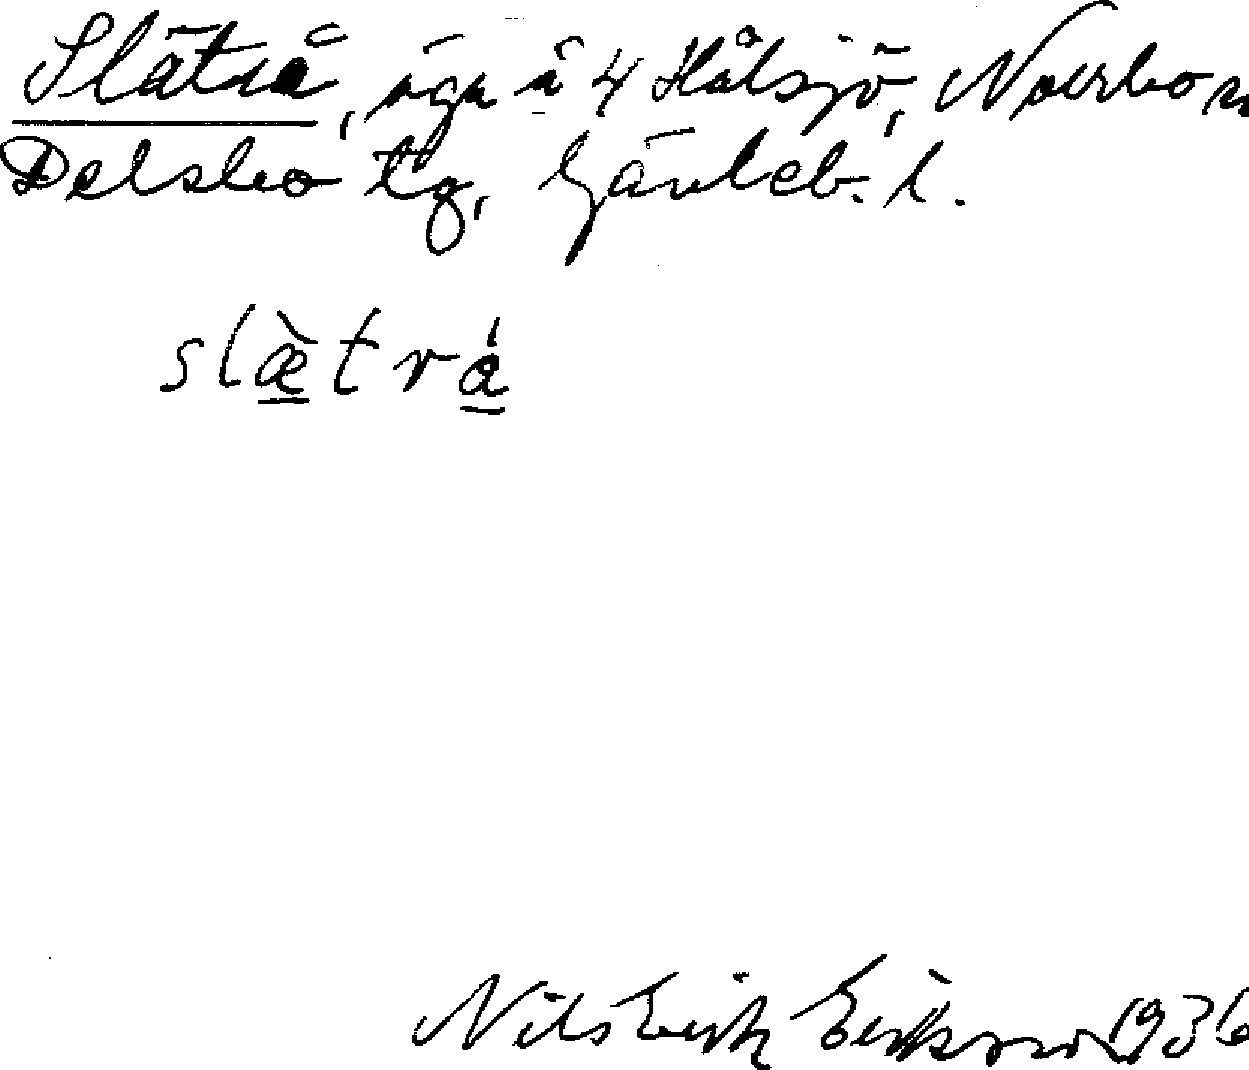 Slåtrå, äga å 4 Hålsjö, Norrbo sn
Delsbo tg, Gävleb. l.
slæ̀trá
Nils Erik Eriksson 1936